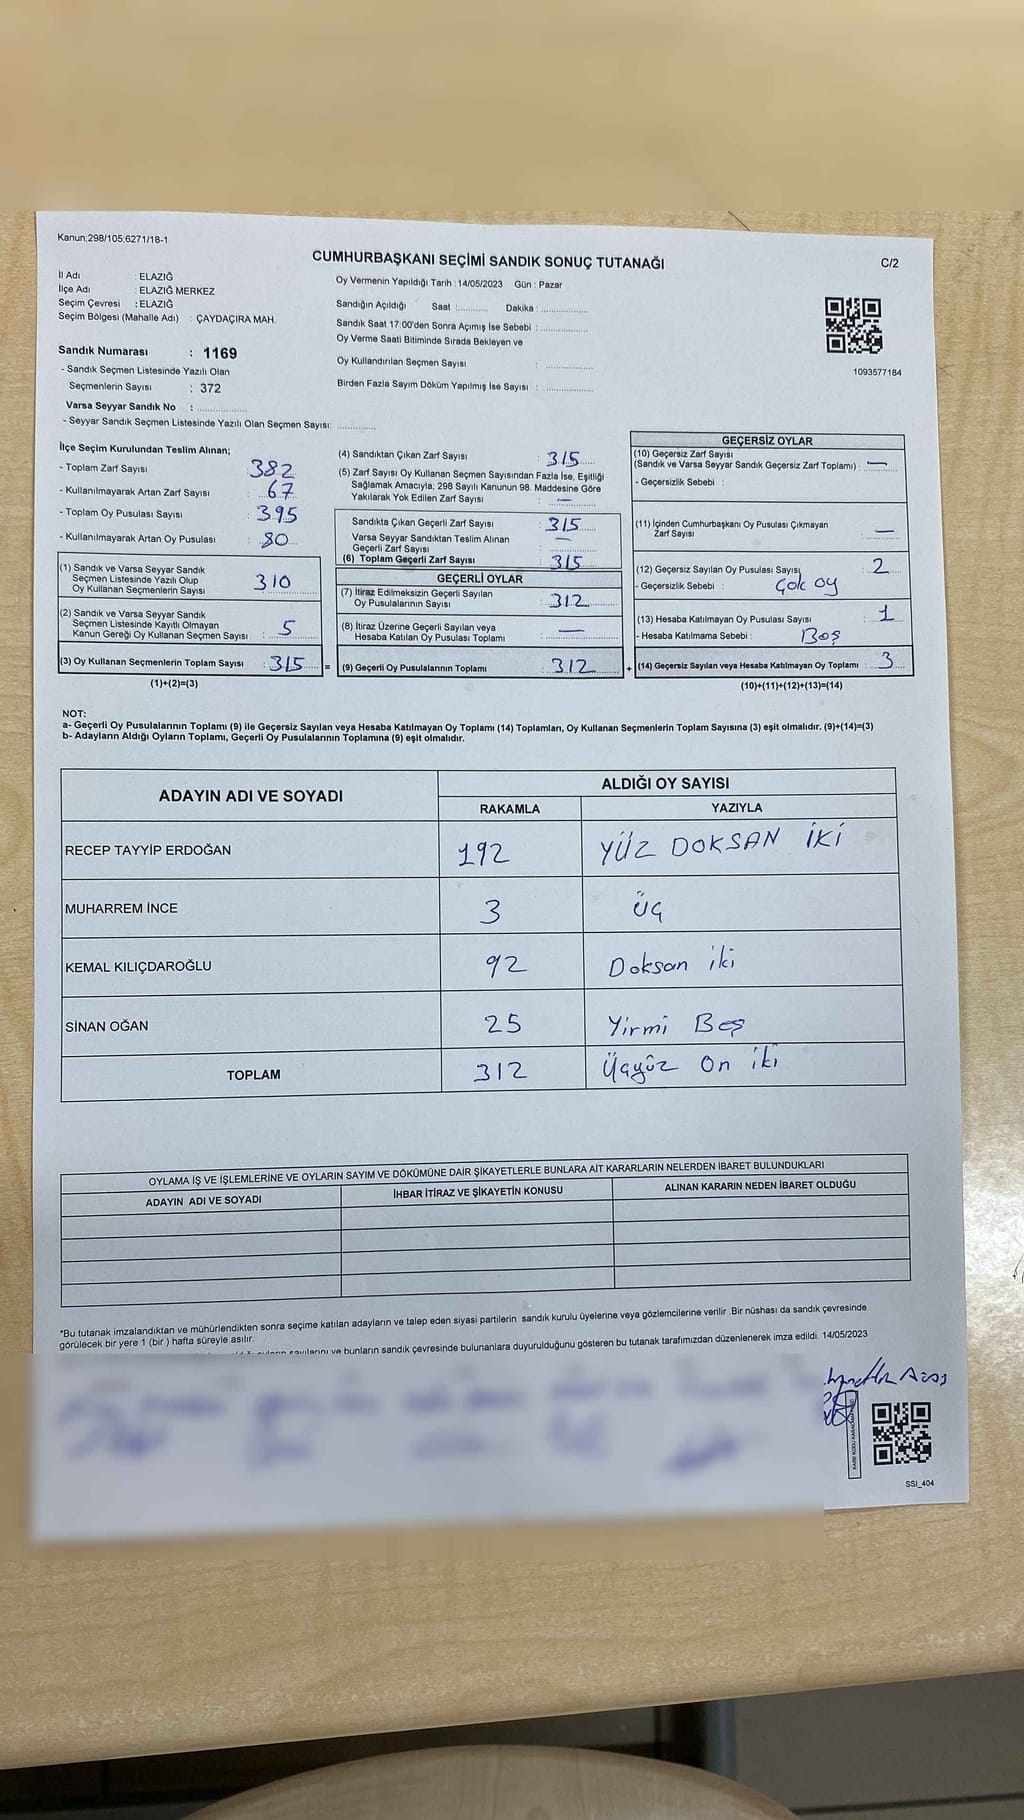 Kanun;298/105;6271/18-1
CUMHURBAŞKANI SEÇİMİ SANDIK SONUÇ TUTANAĞI
C/2
İl Adı : ELAZIĞ
İlçe Adı : ELAZIĞ MERKEZ
Seçim Çevresi : ELAZIĞ
Seçim Bölgesi (Mahalle Adı) : ÇAYDAÇIRA MAH.
Sandık Numarası : 1169
- Sandık Seçmen Listesinde Yazılı Olan
Seçmenlerin Sayısı : 372
Varsa Seyyar Sandık No : ................
- Seyyar Sandık Seçmen Listesinde Yazılı Olan Seçmen Sayısı: ............
Oy Vermenin Yapıldığı Tarih : 14/05/2023 Gün : Pazar
Sandığın Açıldığı Saat :.......... Dakika : ..............
Sandık Saat 17:00'den Sonra Açımış İse Sebebi : ..............
Oy Verme Saati Bitiminde Sırada Bekleyen ve
Oy Kullandırılan Seçmen Sayısı : ..............
Birden Fazla Sayım Döküm Yapılmış İse Sayısı : ..............
1093577184
İlçe Seçim Kurulundan Teslim Alınan;
- Toplam Zarf Sayısı : 382
- Kullanılmayarak Artan Zarf Sayısı : 67
- Toplam Oy Pusulası Sayısı : 395
- Kullanılmayarak Artan Oy Pusulası : 80
(1) Sandık ve Varsa Seyyar Sandık
Seçmen Listesinde Yazılı Olup
Oy Kullanan Seçmenlerin Sayısı : 310
(2) Sandık ve Varsa Seyyar Sandık
Seçmen Listesinde Kayıtlı Olmayan
Kanun Gereği Oy Kullanan Seçmen Sayısı : 5
(3) Oy Kullanan Seçmenlerin Toplam Sayısı : 315
(1)+(2)=(3)
(4) Sandıktan Çıkan Zarf Sayısı : 315
(5) Zarf Sayısı Oy Kullanan Seçmen Sayısından Fazla İse, Eşitliği
Sağlamak Amacıyla; 298 Sayılı Kanunun 98. Maddesine Göre
Yakılarak Yok Edilen Zarf Sayısı : —
Sandıkta Çıkan Geçerli Zarf Sayısı : 315
Varsa Seyyar Sandıktan Teslim Alınan
Geçerli Zarf Sayısı : —
(6) Toplam Geçerli Zarf Sayısı : 315
GEÇERLİ OYLAR
(7) İtiraz Edilmeksizin Geçerli Sayılan
Oy Pusulalarının Sayısı : 312
(8) İtiraz Üzerine Geçerli Sayılan veya
Hesaba Katılan Oy Pusulası Toplamı : —
= (9) Geçerli Oy Pusulalarının Toplamı : 312
GEÇERSİZ OYLAR
(10) Geçersiz Zarf Sayısı
(Sandık ve Varsa Seyyar Sandık Geçersiz Zarf Toplamı) : —
- Geçersizlik Sebebi :
(11) İçinden Cumhurbaşkanı Oy Pusulası Çıkmayan
Zarf Sayısı : —
(12) Geçersiz Sayılan Oy Pusulası Sayısı : 2
- Geçersizlik Sebebi : Çok oy
(13) Hesaba Katılmayan Oy Pusulası Sayısı : 1
- Hesaba Katılmama Sebebi : Boş
+ (14) Geçersiz Sayılan veya Hesaba Katılmayan Oy Toplamı : 3
(10)+(11)+(12)+(13)=(14)
NOT:
a- Geçerli Oy Pusulalarının Toplamı (9) ile Geçersiz Sayılan veya Hesaba Katılmayan Oy Toplamı (14) Toplamları, Oy Kullanan Seçmenlerin Toplam Sayısına (3) eşit olmalıdır. (9)+(14)=(3)
b- Adayların Aldığı Oyların Toplamı, Geçerli Oy Pusulalarının Toplamına (9) eşit olmalıdır.
ADAYIN ADI VE SOYADI ALDIĞI OY SAYISI
RAKAMLA YAZIYLA
RECEP TAYYİP ERDOĞAN 192 YÜZ DOKSAN İKİ
MUHARREM İNCE 3 üç
KEMAL KILIÇDAROĞLU 92 Doksan iki
SİNAN OĞAN 25 Yirmi Beş
TOPLAM 312 Üçyüz On iki
OYLAMA İŞ VE İŞLEMLERİNE VE OYLARIN SAYIM VE DÖKÜMÜNE DAİR ŞİKAYETLERLE BUNLARA AİT KARARLARIN NELERDEN İBARET BULUNDUKLARI
ADAYIN ADI VE SOYADI İHBAR İTİRAZ VE ŞİKAYETİN KONUSU ALINAN KARARIN NEDEN İBARET OLDUĞU
*Bu tutanak imzalandıktan ve mühürlendikten sonra seçime katılan adayların ve talep eden siyasi partilerin sandık kurulu üyelerine veya gözlemcilerine verilir .Bir nüshası da sandık çevresinde
görülecek bir yere 1 (bir ) hafta süreyle asılır.
ve bunların sandık çevresinde bulunanlara duyurulduğunu gösteren bu tutanak tarafımızdan düzenlenerek imza edildi. 14/05/2023
SSI_404